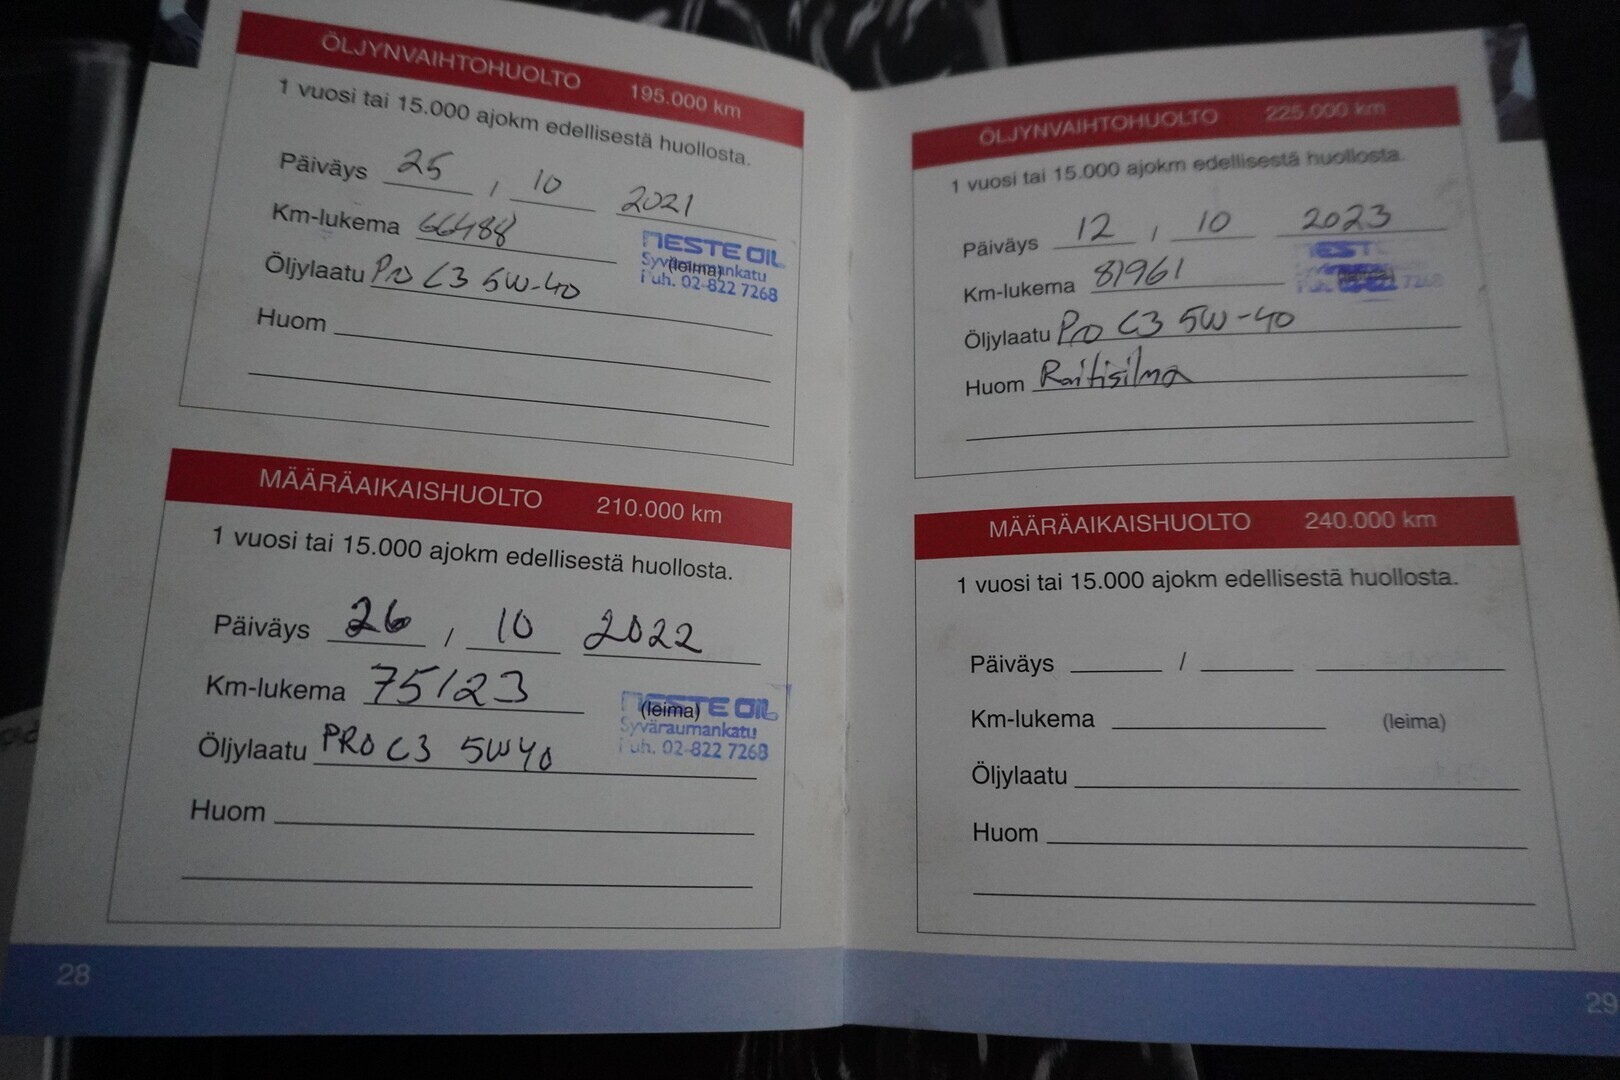 ÖLJYNVAIHTOHUOLTO 195.000 km
1 vuosi tai 15.000 ajokm edellisestä huollosta.
Päiväys 25 / 10 2021
Km-lukema 66488
NESTE OIL
(leima)
Puh. 02-822 7268
Öljylaatu Pro C3 5W-40
Huom
MÄÄRÄAIKAISHUOLTO 210.000 km
1 vuosi tai 15.000 ajokm edellisestä huollosta.
Päiväys 26 / 10 2022
Km-lukema 75123
NESTE OIL
(leima)
Syväraumankatu
Puh. 02-822 7268
Öljylaatu PRO C3 5W40
Huom
28
ÖLJYNVAIHTOHUOLTO 225.000 km
1 vuosi tai 15.000 ajokm edellisestä huollosta.
Päiväys 12 / 10 2023
Km-lukema 81961
Öljylaatu Pro C3 5W-40
Huom Raitisilma
MÄÄRÄAIKAISHUOLTO 240.000 km
1 vuosi tai 15.000 ajokm edellisestä huollosta.
Päiväys /
Km-lukema (leima)
Öljylaatu
Huom
29